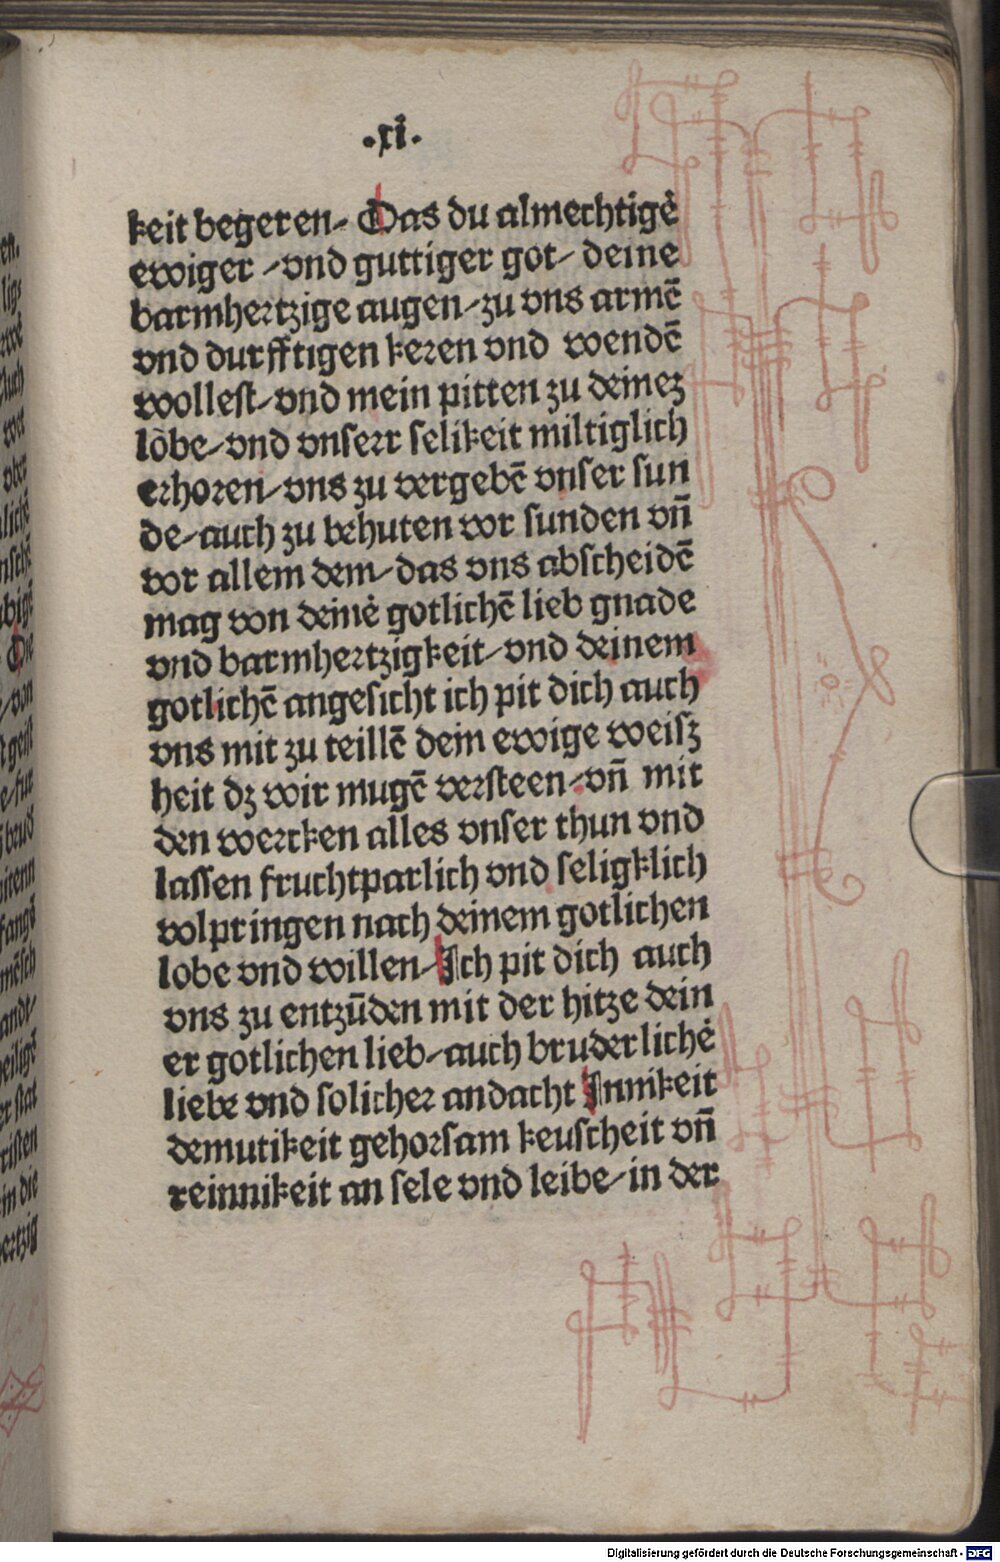 .xi.
keit begeren- Das du almechtigė
ewiger -vnd guttiger got- deine
barmhertzige augen-zu vns armē
vnd durfftigen keren vnd wendē
wollest-vnd mein pitten zu deinez
lōbe-vnd vnserr selikeit miltiglich
erhoren-vns zu vergebē vnser sun
de-auch zu behuten vor sunden vn̄
vor allem dem-das vns abscheidē
mag von deinė gotlichē lieb gnade
vnd barmhertzigkeit-vnd deinem
gotlichē angesicht ich pit dich auch
vns mit zu teillē dein ewige weisz
heit dz wir mugē versteen-vn̄ mit
den wercken alles vnser thun vnd
lassen fruchtparlich vnd seligklich
volpringen nach deinem gotlichen
lobe vnd willen-Ich pit dich auch
vns zu entzūden mit der hitze dein
er gotlichen lieb-auch bruderlichė
liebe vnd solicher andacht Innikeit
demutikeit gehorsam keuscheit vn̄
reinnikeit an sele vnd leibe-in der
Digitalisierung gefördert durch die Deutsche Forschungsgemeinschaft - DFG